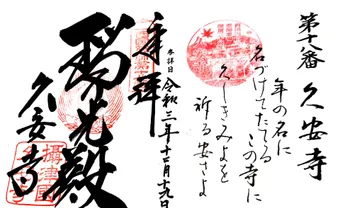 第十八番 久安寺
年の名に
名づけてたてる この寺に
久しきみよを
祈る安さよ
奉拝
参拝日 令和三年十二月十九日
瑠光殿
久安寺
攝津國